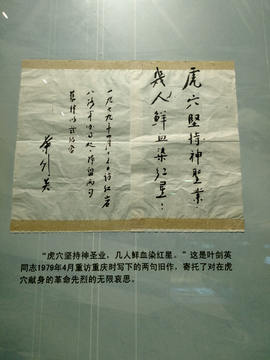 虎穴堅持神聖業
幾人鮮血染红星
一九七九年四月
访红岩
八路军办事处
两句
葉剑英
“虎穴坚持神圣业，几人鲜血染红星。”这是叶剑英
同志1979年4月重访重庆时写下的两句旧作，寄托了对在虎
穴献身的革命先烈的无限哀思。